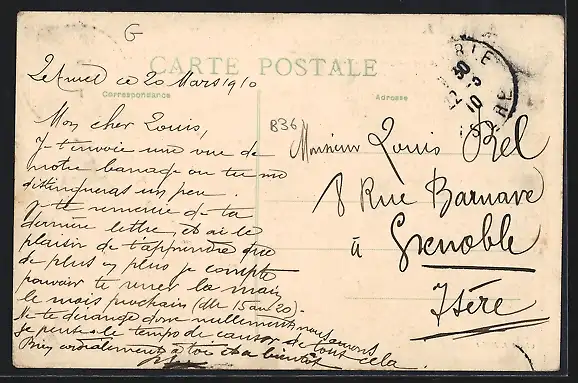 G
CARTE POSTALE
Correspondance
Adresse
ce 20 Mars 1910
836
Mon cher Louis,
Je t'envoie une vue de
notre barrage où tu me
distingueras un peu.
Je te remercie de ta
dernière lettre, et ai le
plaisir de t'apprendre que
de plus en plus je compte
pouvoir te serrer la main
le mois prochain (du 15 au 20).
Ne te dérange donc nullement nous aurons
je pense le temps de causer de tout cela.
Bien cordialement à toi et à bientôt
Monsieur Louis Bel
8 Rue Barnave
à Grenoble
Isère